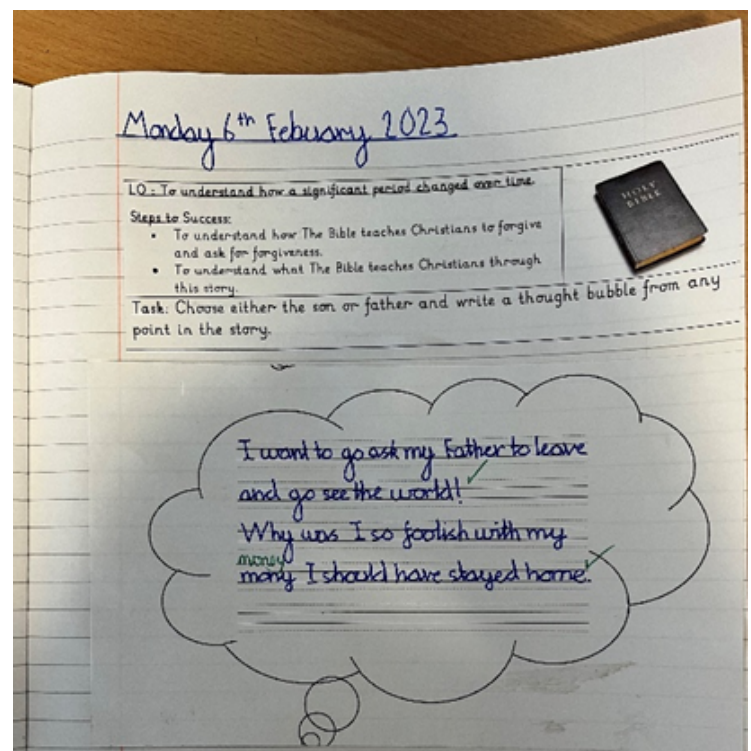 Monday 6th Febuary 2023
HOLY
BIBLE
LO: To understand how a significant period changed over time.
Steps to Success:
• To understand how The Bible teaches Christians to forgive
and ask for forgiveness.
• To understand what The Bible teaches Christians through
this story.
Task: Choose either the son or father and write a thought bubble from any
point in the story.
I want to go ask my Father to leave
and go see the world!
Why was I so foolish with my
money
mony I should have stayed home!